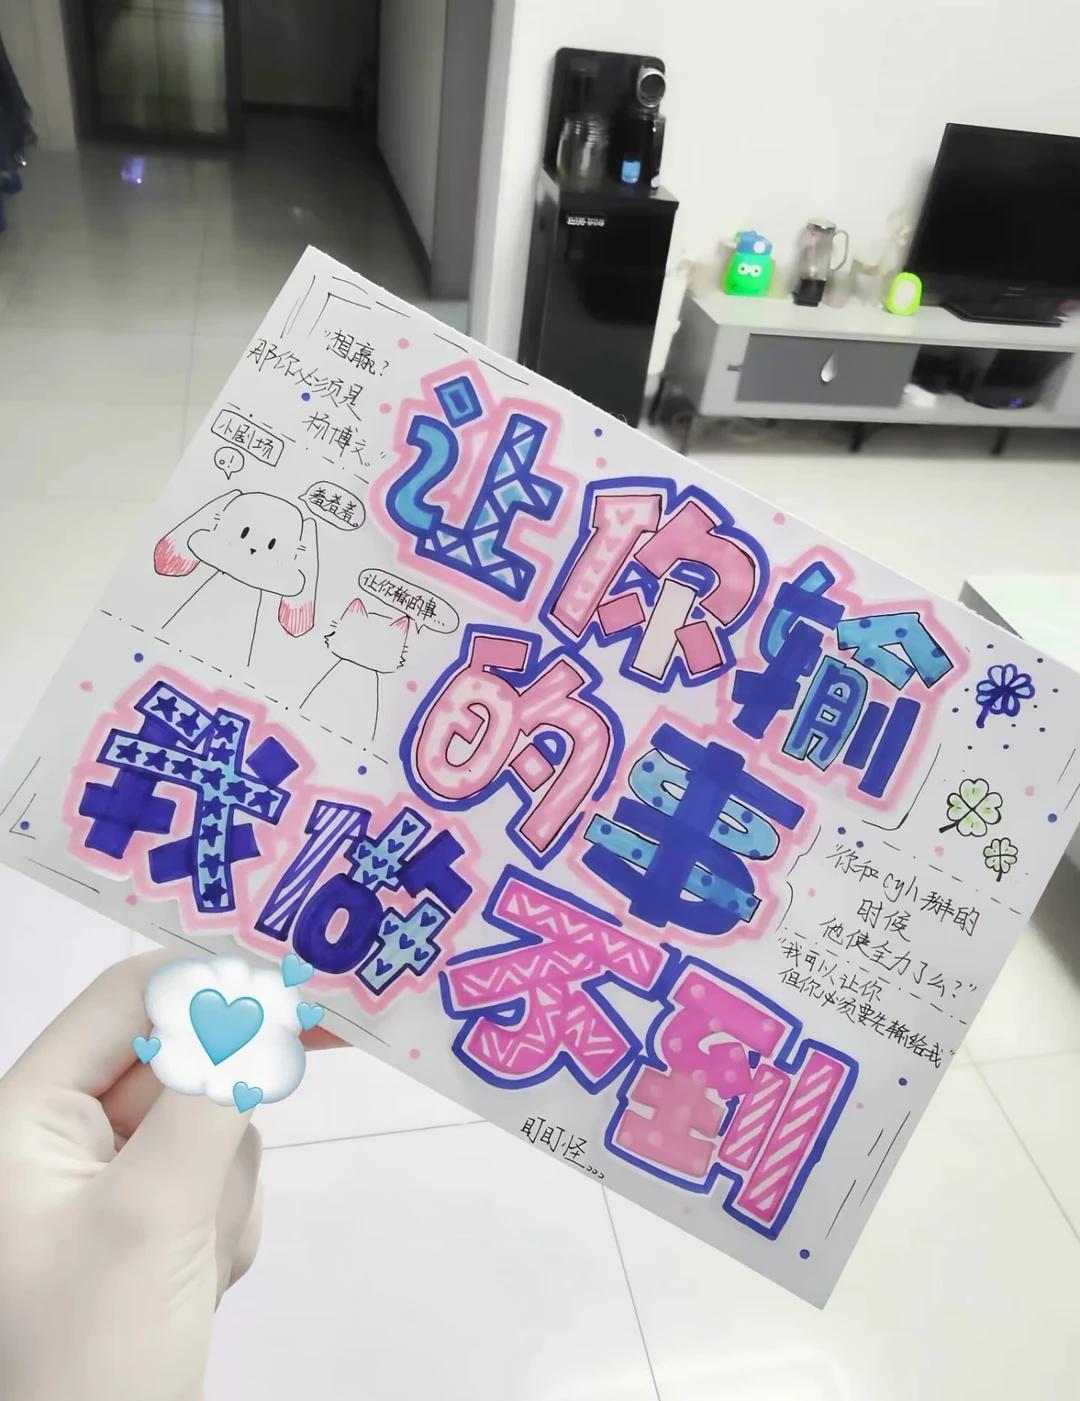 "想赢?
那你必须是
杨博文。"
小剧场
。!
羞羞羞。
让你输的事...
让你输
的事
我做
不到
"你和cyh掰的
时候
他使全力了么?"
"我可以让你
但你必须要先输给我"
盯盯怪...